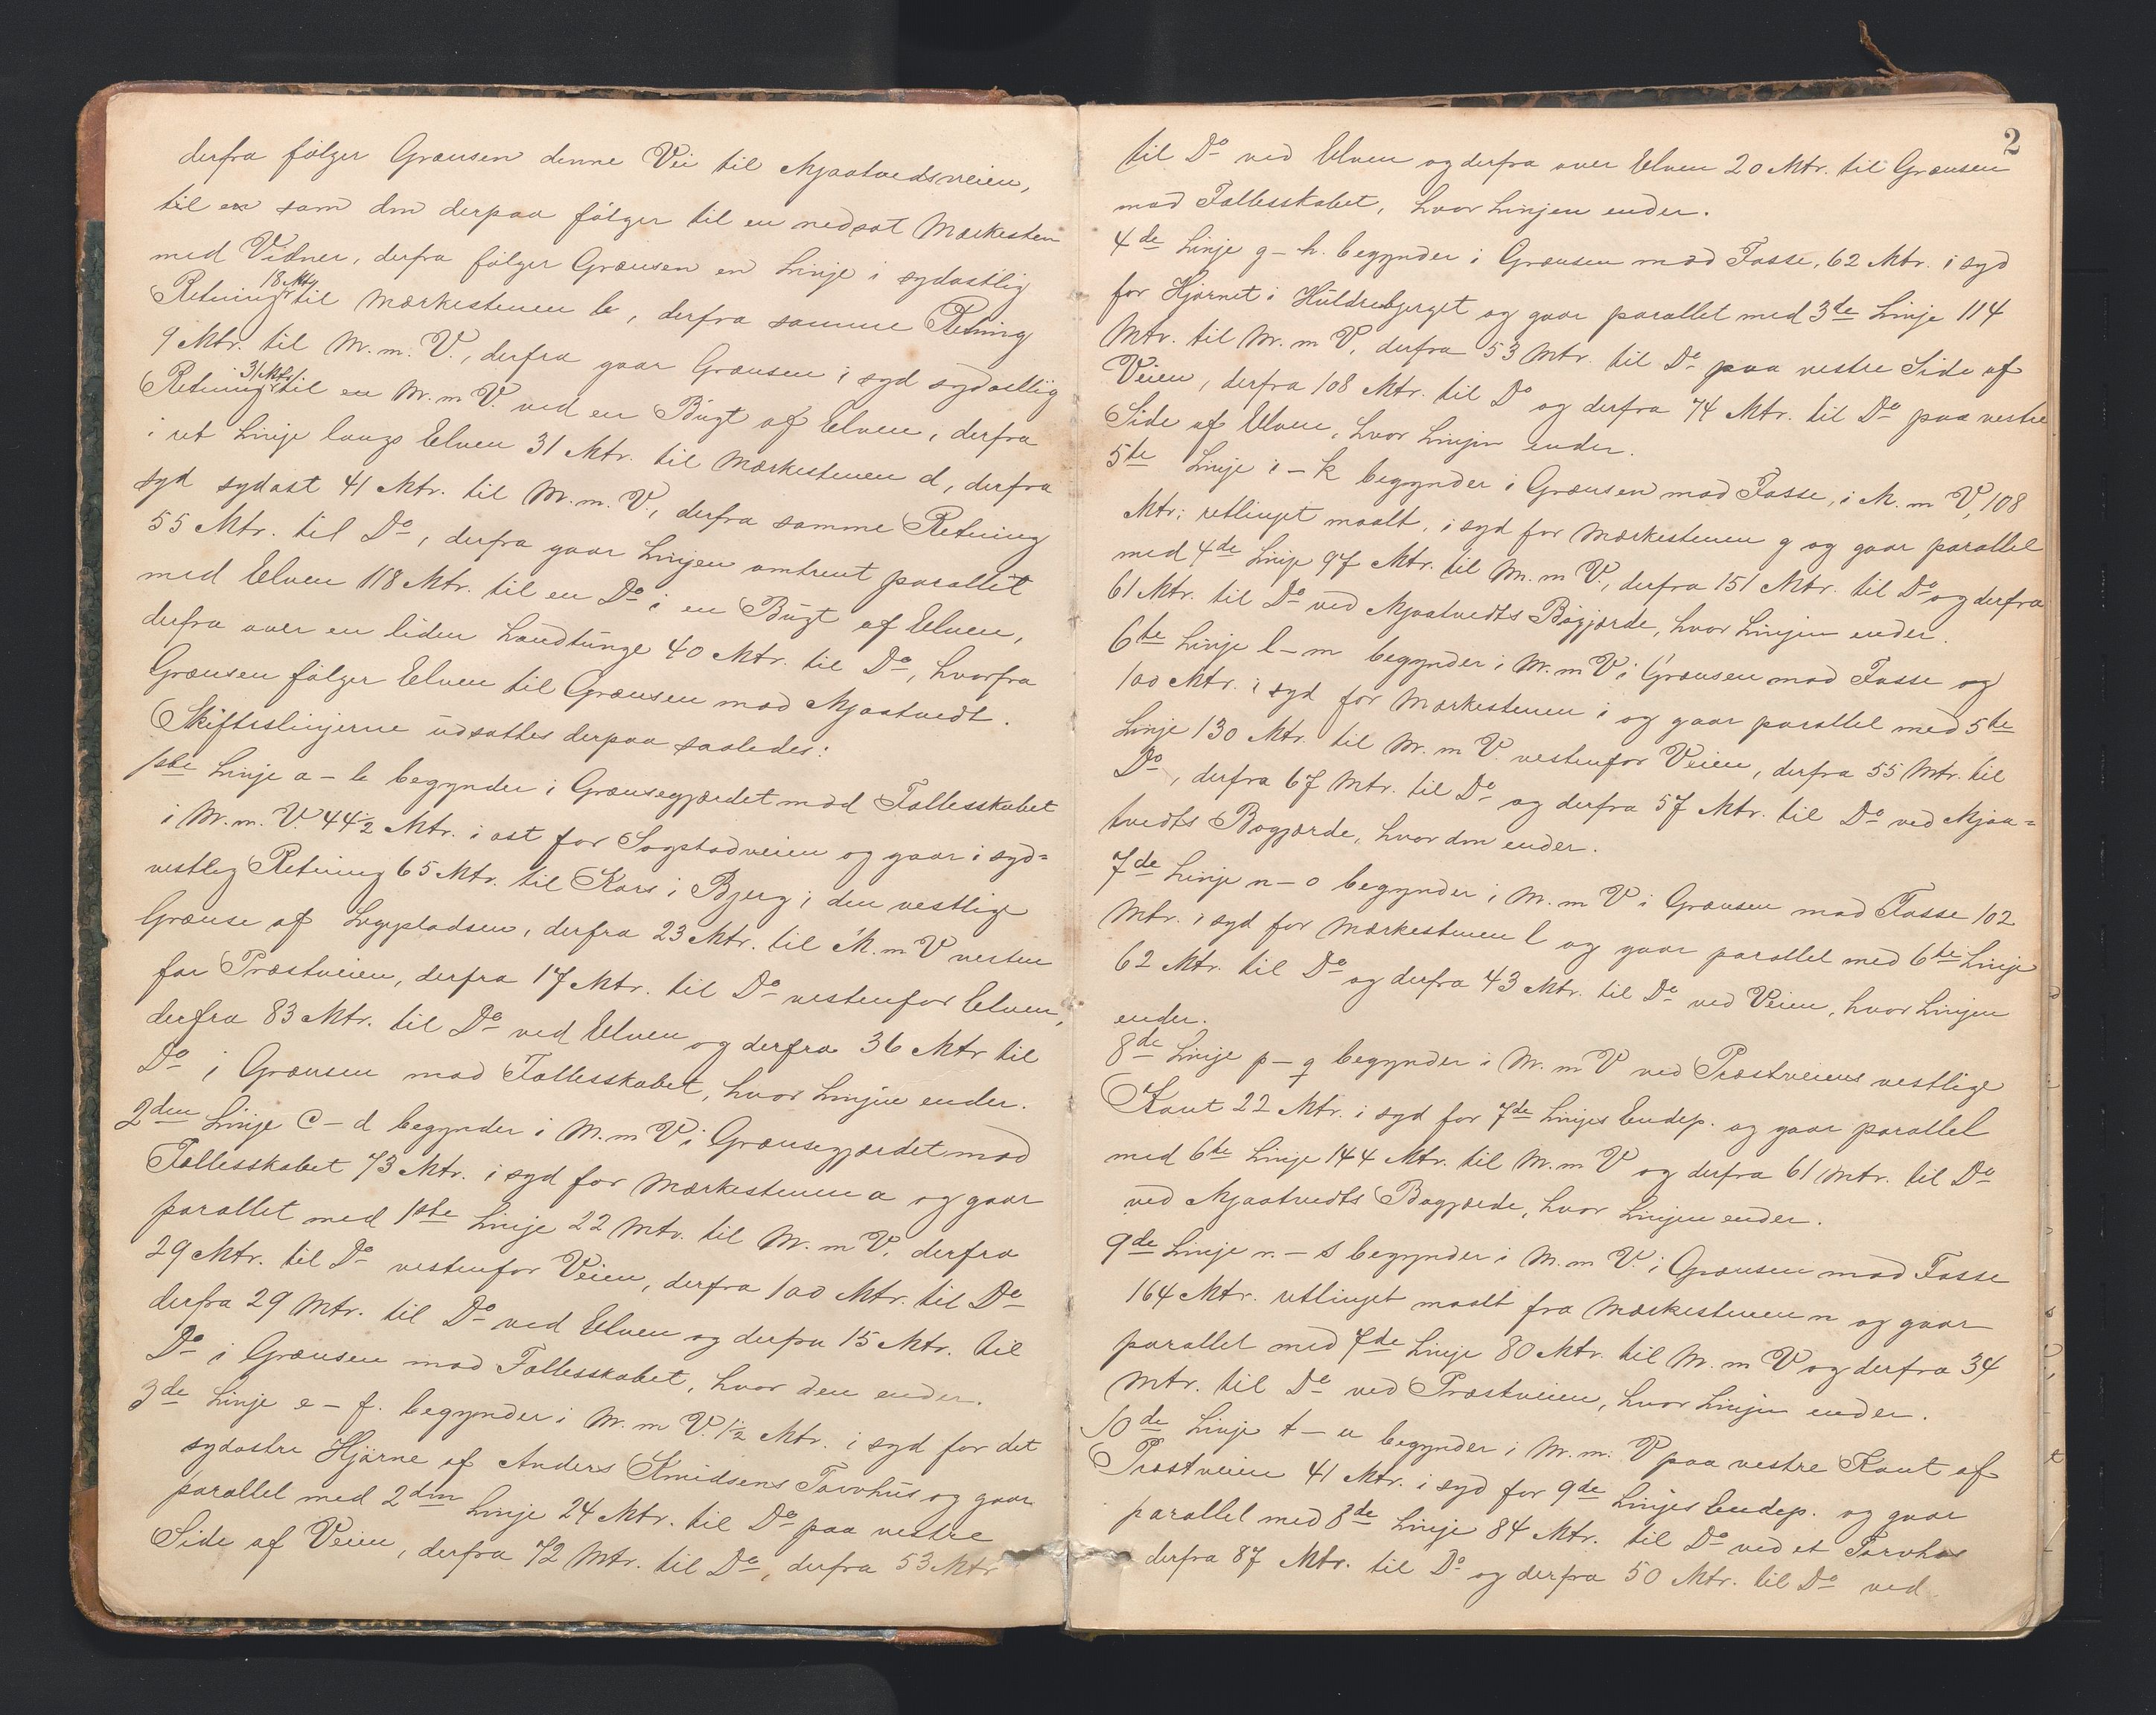 derfra følger Grænsen denne Vei til Mjaatvedsveien,
til en som den derpaa følger til en nedsat Mærkesten
med Vidner, derfra følger Grænsen en Linje i sydøstlig
Retning 18 Mtr. til Mærkestenen b, derfra samme Retning
9 Mtr. til M. m. V., derfra gaar Grænsen i syd sydøstlig
Retning 31 Mtr. til en M. m V. ved en Bugt af Elven, derfra
i ret Linje langs Elven 31 Mtr. til Mærkestenen d, derfra
syd sydøst 41 Mtr. til M. m. V., derfra samme Retning
55 Mtr. til Do, derfra gaar Linjen omtrent parallet
med Elven 118 Mtr. til en Do i en Bugt af Elven,
derfra over en liden Landtunge 40 Mtr. til Do, hvorfra
Grænsen følger Elven til Grænsen mod Mjaatvedt.
Skifteslinjerne udsattes derpaa saaledes:
1ste Linje a - b begynder i Grænsegjærdet mod Fællesskabet
i M. m. V. 44 1/2 Mtr. i øst for Sogstadveien og gaar i syd=
vestlig Retning 65 Mtr. til Kors i Bjerg i den vestlige
Grænse af Legepladsen, derfra 23 Mtr. til M. m V vesten
for Præstveien, derfra 17 Mtr. til Do vestenfor Elven,
derfra 83 Mtr. til Do ved Elven og derfra 36 Mtr til
Do i Grænsen mod Fællesskabet, hvor Linjen ender.
2den Linje c - d begynder i M. m V i Grænsegjærdet mod
Fællesskabet 73 Mtr. i syd for Mærkestenen a og gaar
parallet med 1ste Linje 22 Mtr. til M. m V. derfra
29 Mtr. til Do vestenfor Veien, derfra 100 Mtr. til Do
derfra 29 Mtr. til Do ved Elven og derfra 15 Mtr. til
Do i Grænsen mod Fællesskabet, hvor den ender.
3de Linje e - f. begynder i M. m V. 1 1/2 Mtr. i syd for det
sydøstre Hjørne af Anders Knudsens Torvhus og gaar
parallel med 2den Linje 24 Mtr. til Do paa vestre
Side af Veien, derfra 72 Mtr. til Do, derfra 53 Mtr
2
til Do ved Elven og derfra over Elven 20 Mtr. til Grænsen
mod Fællesskabet, hvor Linjen ender.
4de Linje g - h. begynder i Grænsen mod Fosse, 62 Mtr. i syd
for Hjørnet i Huldrebjerget og gaar parallel med 3de Linje 114
Mtr. til M. m V, derfra 53 Mtr. til Do paa vestre Side af
Veien, derfra 108 Mtr. til Do og derfra 74 Mtr. til Do paa vestre
Side af Elven, hvor Linjen ender.
5te Linje i - k begynder i Grænsen mod Fosse, i M. m V, 108
Mtr. retlinjet maalt, i syd for Mærkestenen g og gaar parallel
med 4de Linje 97 Mtr. til M. m V., derfra 151 Mtr. til Do og derfra
61 Mtr. til Do ved Mjaatvedts Bøgjærde, hvor Linjen ender.
6te Linje l - m begynder i M. m V i Grænsen mod Fosse og
100 Mtr. i syd for Mærkestenen i og gaar parallel med 5te
Linje 130 Mtr. til M. m V. vestenfor Veien, derfra 55 Mtr. til
Do, derfra 67 Mtr. til Do og derfra 57 Mtr. til Do ved Mjaa=
tvedts Bøgjærde, hvor den ender.
7de Linje n - o begynder i M. m V i Grænsen mod Fosse 102
Mtr. i syd for Mærkestenen l og gaar parallel med 6te Linje
62 Mtr. til Do og derfra 43 Mtr. til Do ved Veien, hvor Linjen
ender.
8de Linje p - q begynder i M. m V ved Præstveiens vestlige
Kant 22 Mtr. i syd for 7de Linjes Endep. og gaar parallel
med 6te Linje 144 Mtr. til M. m V og derfra 61 Mtr. til Do
ved Mjaatvedts Bøgjærde, hvor Linjen ender.
9de Linje r. - s begynder i M. m V. i Grænsen mod Fosse
164 Mtr. retlinjet maalt fra Mærkestenen n og gaar
parallel med 7de Linje 80 Mtr. til M. m V og derfra 34
Mtr. til Do ved Præstveien, hvor Linjen ender.
10de Linje t - u begynder i M. m. V paa vestre Kant af
Præstveien 41 Mtr. i syd for 9de Linjes Endep. og gaar
parallel med 8de Linje 84 Mtr. til Do ved et Torvhus
derfra 87 Mtr. til Do og derfra 50 Mtr. til Do ved